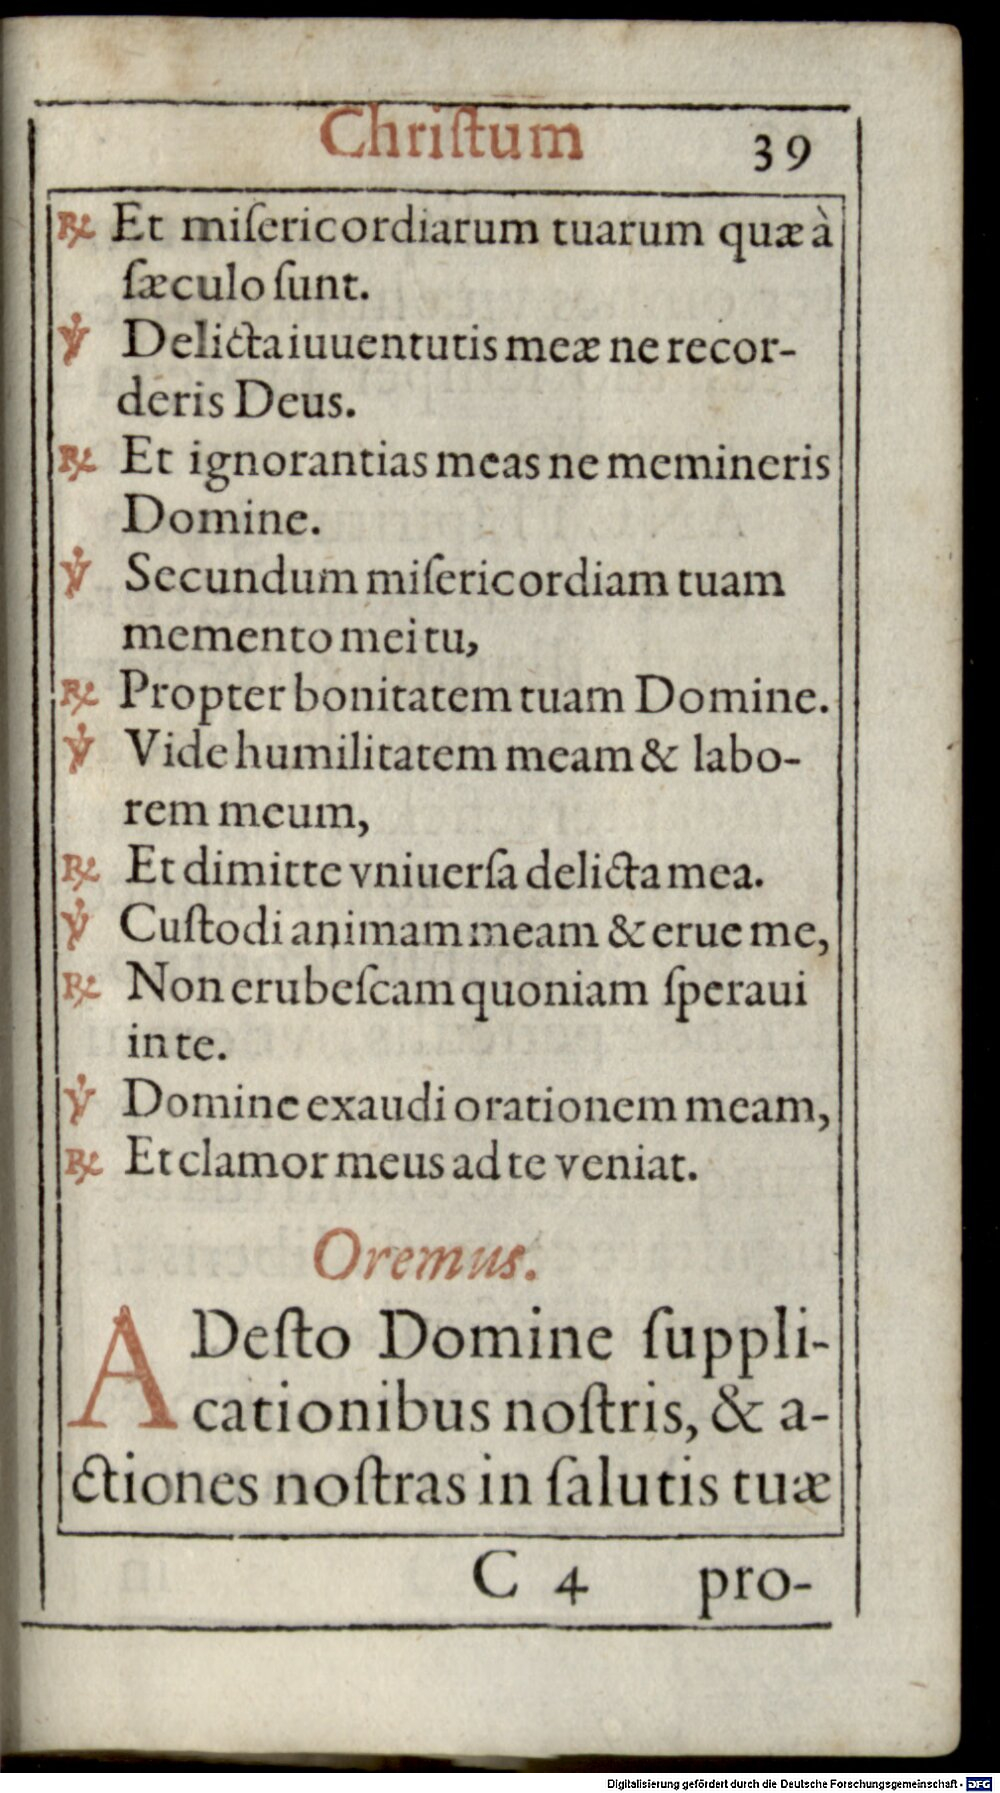 Chriſtum 39
℟ Et miſericordiarum tuarum quæ à
ſæculo ſunt.
℣ Delicta iuuentutis meæ ne recor-
deris Deus.
℟ Et ignorantias meas ne memineris
Domine.
℣ Secundum miſericordiam tuam
memento mei tu,
℟ Propter bonitatem tuam Domine.
℣ Vide humilitatem meam & labo-
rem meum,
℟ Et dimitte vniuerſa delicta mea.
℣ Cuſtodi animam meam & erue me,
℟ Non erubeſcam quoniam ſperaui
in te.
℣ Domine exaudi orationem meam,
℟ Et clamor meus ad te veniat.
Oremus.
ADeſto Domine ſuppli-
cationibus noſtris, & a-
ctiones noſtras in ſalutis tuæ
C 4 pro-
Digitalisierung gefördert durch die Deutsche Forschungsgemeinschaft - DFG